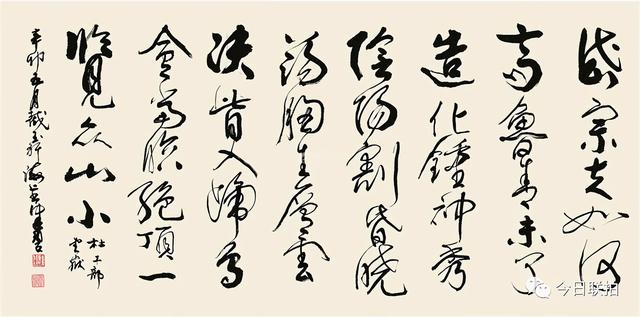 岱宗夫如何
齊魯青未了
造化鍾神秀
陰陽割昏曉
蕩胸生層雲
決眥入歸鳥
會當臨絕頂一
覽眾山小
杜工部
望嶽
辛卯五月
今日联拍